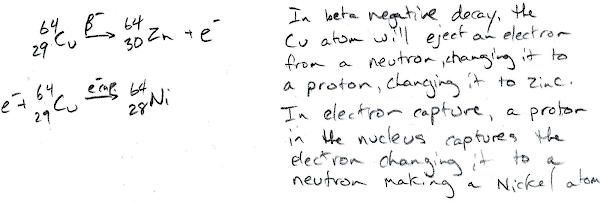 ⁶⁴₂₉Cu β⁻→ ⁶⁴₃₀Zn + e⁻
e⁻+ ⁶⁴₂₉Cu e⁻cap.→ ⁶⁴₂₈Ni
In beta negative decay, the
Cu atom will eject an electron
from a neutron, changing it to
a proton, changing it to zinc.
In electron capture, a proton
in the nucleus captures the
electron changing it to a
neutron making a Nickel atom